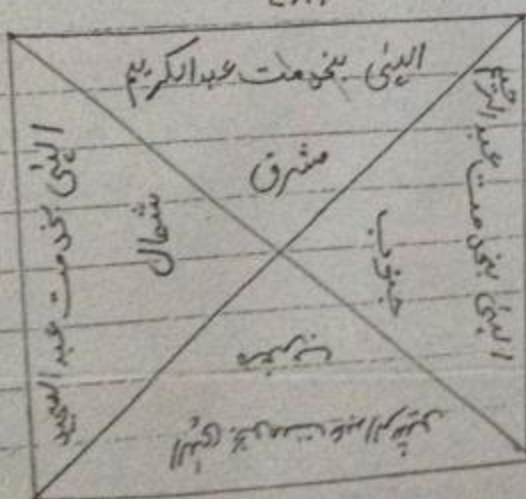 ٧٨٦
الہٰی بخدمت عبدالکریم
مشرق
الہٰی بخدمت عبدالرحیم
جنوب
مغرب
الہٰی بخدمت عبدالرشید
شمال
الہٰی بخدمت عبدالمجید